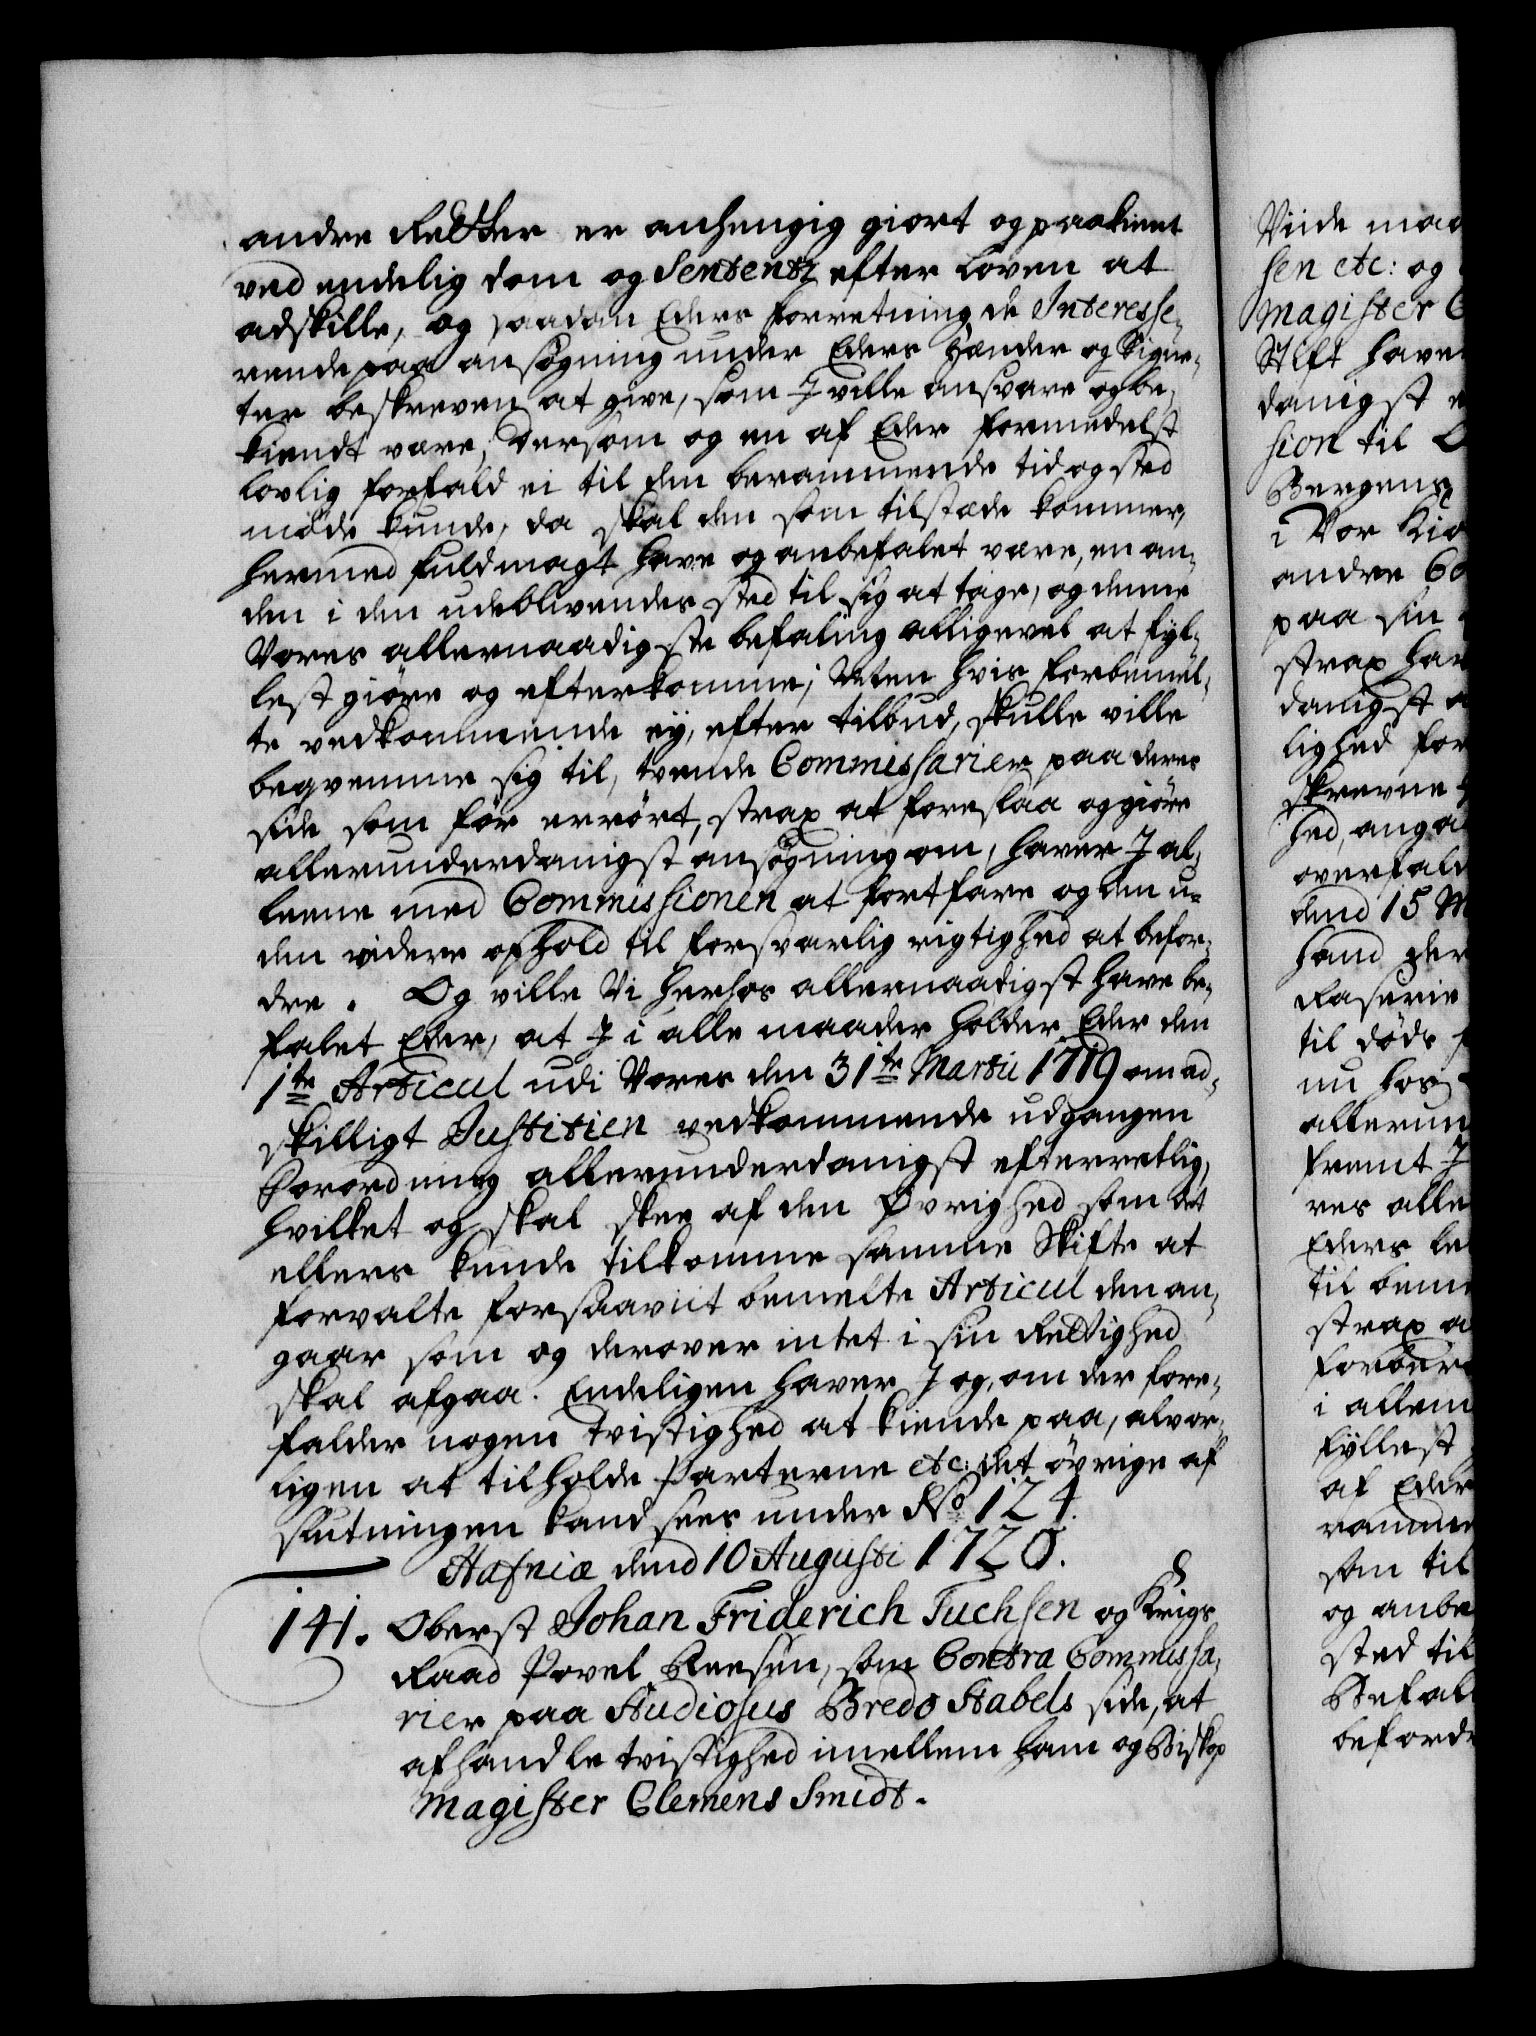 andre Retter er anhengig giort og paakient
ved endelig dom og Sententz efter loven at
adskille, og saadan Eders forretning de Interesse-
rende paa ansøgning under Eders hænder og Signe-
ter beskreven at give, som I ville ansvare og be-
kiendt være; dersom og en af Eder formedelst
lovlig forfald ei til den berammende tid og sted
møde kunde, da skal den som tilstæde kommer,
hermed fuldmagt have og anbefalet være, en an-
den i den udeblivendes sted til sig at tage, og denne
Vores allernaadigste befaling alligevel at fyl-
lest giøre og efterkomme; Men hvis forbemel-
te vedkommende ej, efter tilbud, skulle ville
beqvemme sig til, tvende Commissarier paa deres
side som før errørt, strax at foreslaa og giøre
allerunderdanigst ansøgning om, haver I al-
leene med Commissionen at fortfare og den u-
den videre ophold til forsvarlig rigtighed at befor-
dre. Og ville Vi herhos allernaadigst have be-
falet Eder, at I i alle maader holder Eder den
1te Articul udi Vores den 31te Martii 1719 om ad-
skilligt Justitien vedkommende udgangen
Forordning allerunderdanigst efterretlig,
hvilket og skal skee af den Øvrighed som det
ellers kunde tilkomme samme Skifte at
forvalte forsaaviit bemelte Articul den an-
gaar som og derover intet i sin Rettighed
skal afgaa. Endeligen haver I og, om der fore-
falder nogen tvistighed at kiende paa, alvor-
ligen at tilholde Parterne etc: det øvrige af
slutningen kand sees under No 124.
Hafniæ dend 10 Augusti 1720.
141. Oberst Johan Friderich Tuchsen og Krigs
Raad Povel Reesen, som Contra Commissa-
rier paa Studiosus Bredo Stabels side, at
afhandle tvistighed imellem ham og Biskop
Magister Clemens Smidt.
Viide maa
sen etc: og
Magister C
Stift have
danigst
sion til
Bergens
i Vor Kiø
andre Co
paa sin
strax har
danigst
lighed for
skrevne
hed, anga
overfald
dend 15 M
hand
Raserie
til døds
nu hos
allerun
fremt I
res alle
Eders
til beme
strax a
forberø
i allem
fyllest
af Eder
ramme
som til
og anbe
sted til
Befal
befordr